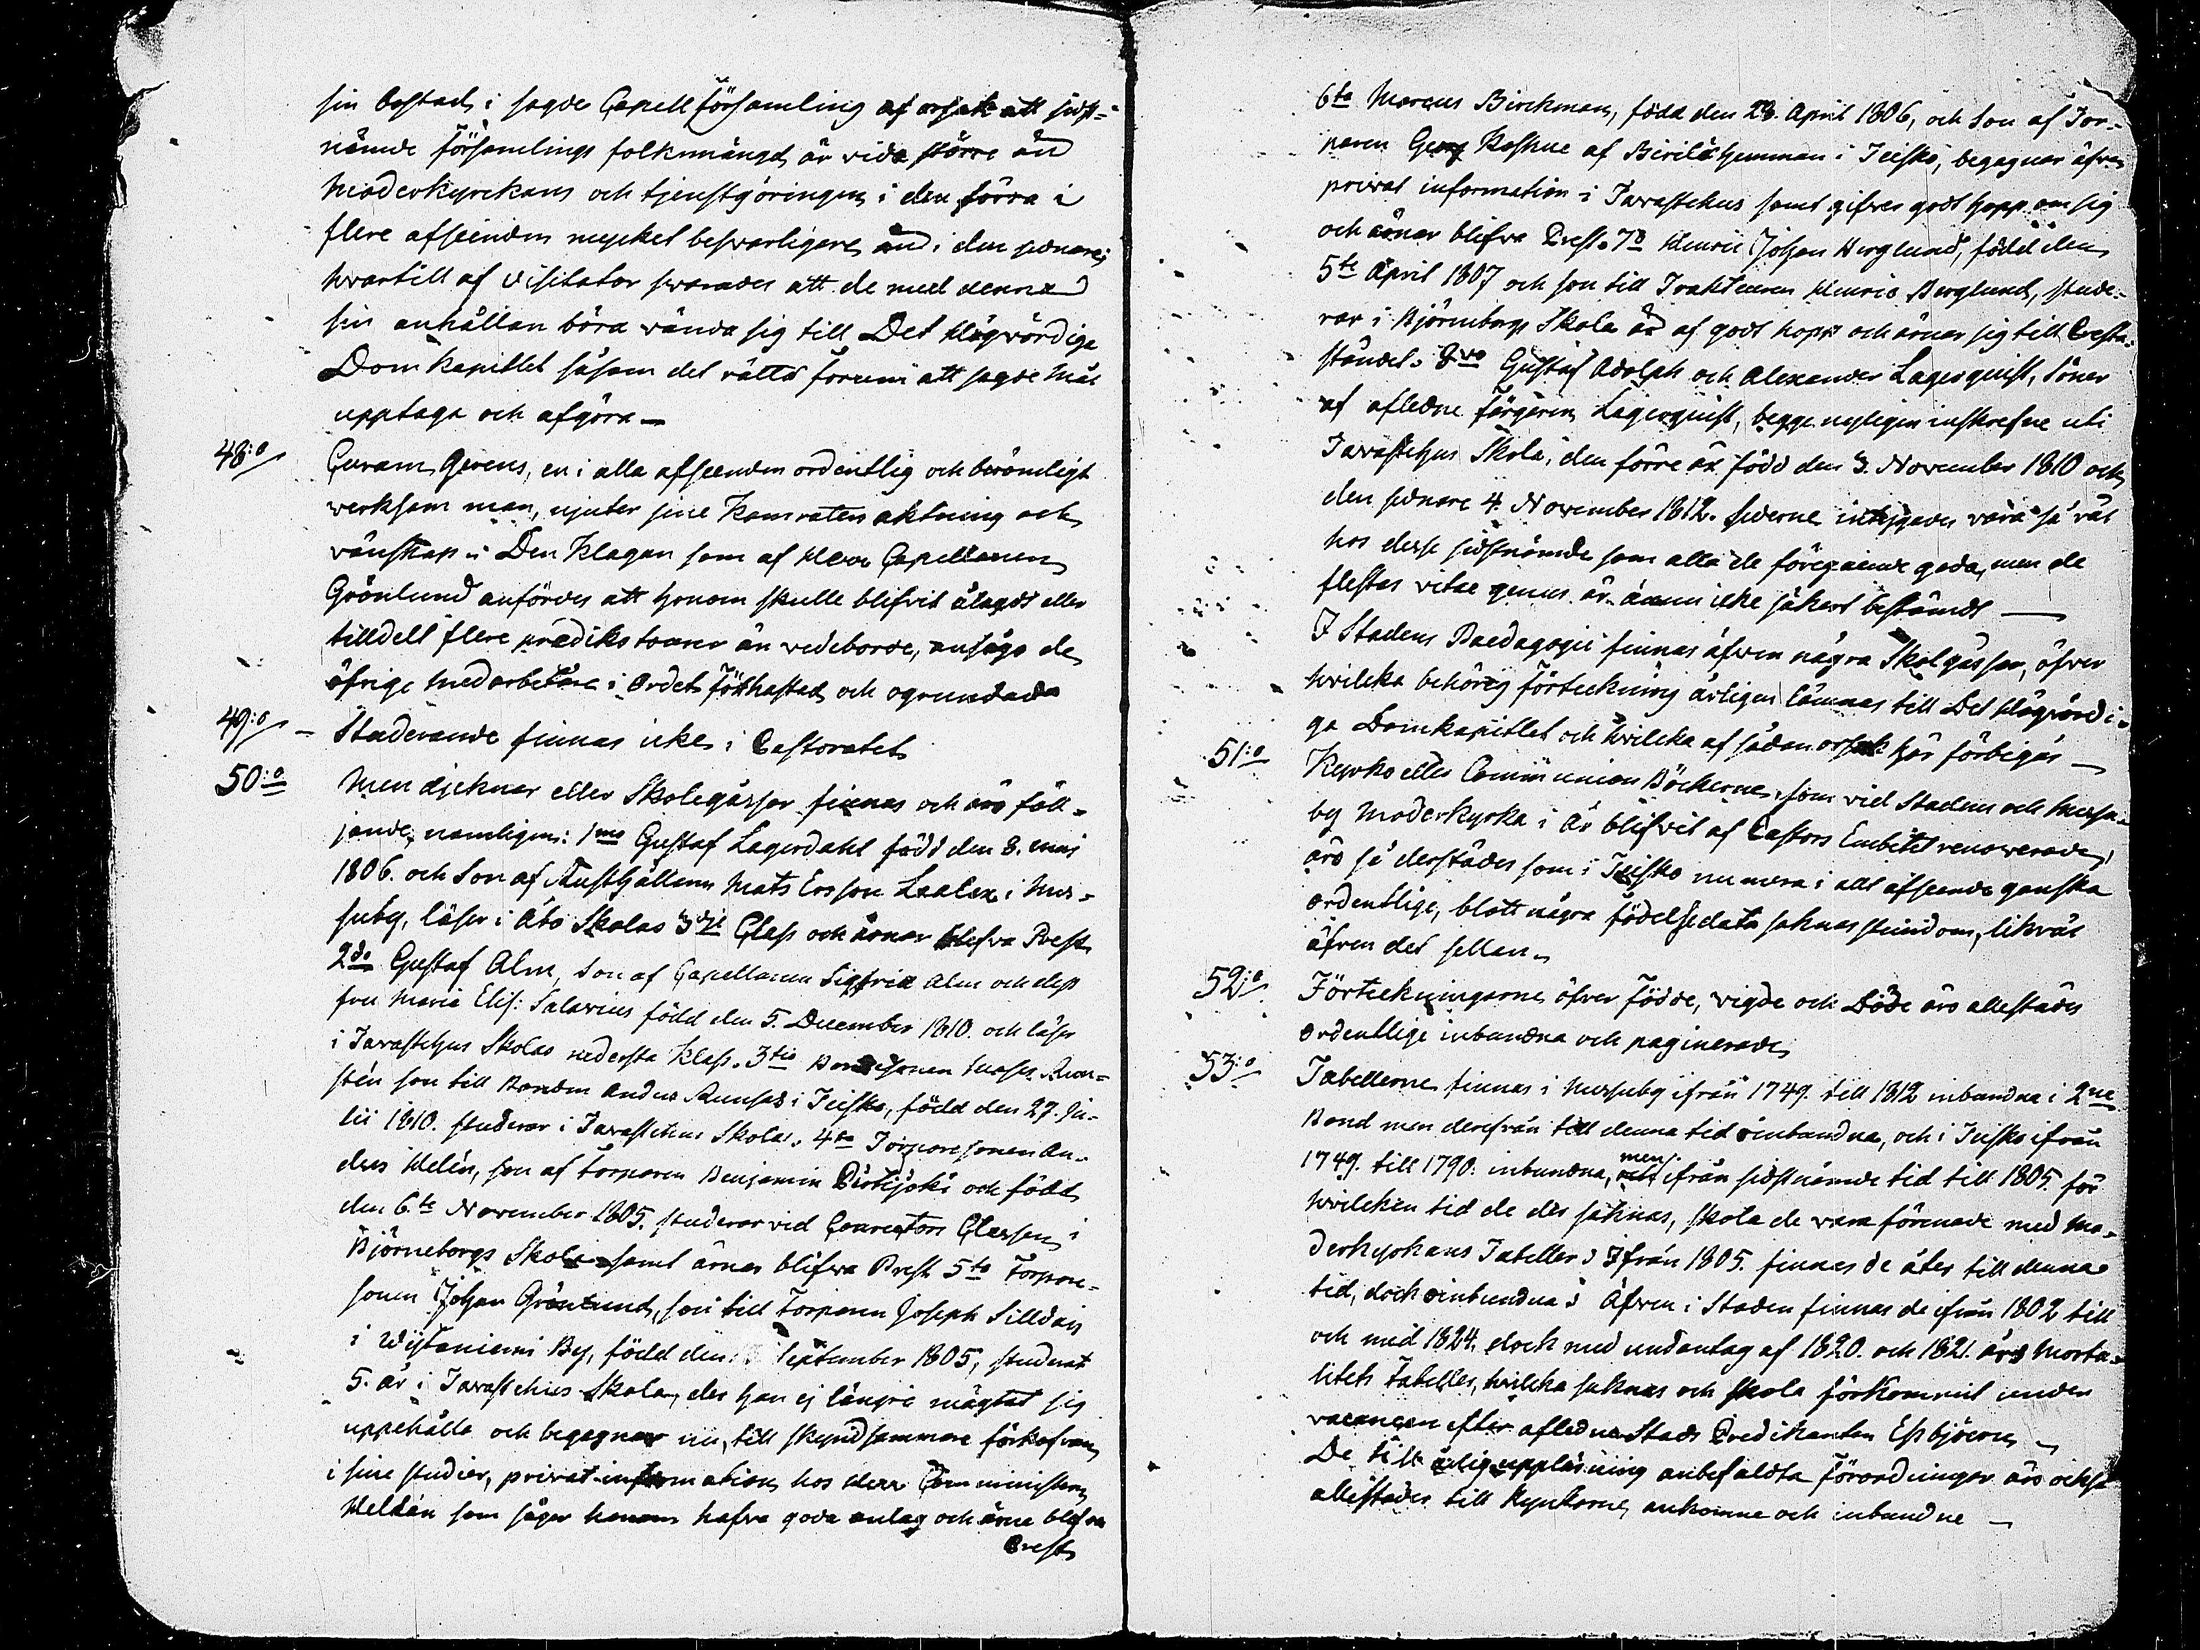 sin bostad i sagde Capellförsamling af orsak att sidst-
nämde församlings folkmängd är vida större än
Moderkyrckans och tjenstgöringen i den förra i
flere afseenden mycket besvärligare än i den sednare,
hvartill af Visitator svarades att de med denna
sin anhållan böra vända sig till Det Högvördiga
Domkapitlet såsom det rätta forum att sagde mål
upptaga och afgöra —
48:o Curam Gerens, en i alla afseenden ordentlig och berömligt
verksam man, njuter sine Kamraters aktning och
vänskap. Den Klagan som af Herr Capellanen
Grönlund anfördes att honom skulle blifvit ålagdt eller
tilldelt flere predikoturer än vederborde, ansågs de
öfrige medarbetare i Ordet förhastad och ogrundad
49:o — Studerande finnas icke i Pastoratet
50:o Men djeknar eller Skolegåssar finnas och äro föll-
jande, namligen: 1mo Gustaf Lagerdahl född den 8. maj
1806. och Son af Rusthållaren Mats Ersson Laalax i Mus-
suby, läser i Åbo Skolas 3dje Class och ärnar blifva Prest
2do Gustaf Alm, Son af Capellanen Sigfrid Alm och dess
fru Maria Elis: Salovius född den 5. December 1810. och läser
i Tavastehus Skolas nedersta Klass. 3tio Bondesonen
stén son till Bonden Anders i Teisko, född den 27. Ju-
lii 1810. studerar i Tavastehus Skola. 4to Torparesonen An-
ders Helén, son af Torparen Benjamin och född
den 6te November 1805. studerar vid Conrectors Classen i
Björneborgs Skola samt ärnar blifva Prest 5to Torpare-
sonen Johan Grönlund, son till Torparen Joseph
i By, född den September 1805, studerat
5. år i Tavastehus Skola, der han ej längre mägtat sig
uppehålla och begagnar nu, till skyndsammare förkofran
i sine studier, privat information hos Herr Comministern
Heldán som säger honom hafva goda anlag och ärna blifva
Prest
6to Marcus Birckman, född den 28. April 1806, och Son af Tor-
paren Georg Koskue af hemman i Teisko, begagnar äfven
privat information i Tavastehus samt gifver godt hopp om sig
och ärnar blifva Prest. 7o Henric Johan Berglund, född den
5te April 1807 och son till Traktören Henric Berglund, stude-
rar i Björneborgs Skola är af godt hopp och ärnar sig till Presta-
ståndet. 8vo Gustaf Adolph och Alexander Lagerquist, Söner
af aflidne Färgaren Lagerquist, begge nyligen inskrefne uti
Tavastehus Skola, den förre är född den 3. November 1810 och
den sednare 4. November 1812. sederne intygades vara så väl
hos desse sistnämde som alla de föregående goda, men de
flestas vitae genus är ännu icke säkert bestämdt —
I Stadens Paedagogie finnas äfven några Skolgåssar, öfver
hvilcka behörig förteckning årligen lämnas till Det Högvördi-
ga Domkapitlet och hvilcka af sådan orsak här förbigås —
51:o Kyrko eller Communion Böckerne, som vid Staden och Messu-
by Moderkyrka i År blifvit af Pastors Embetet renoverade,
äro så derstädes som i Teisko numera i alt afseende ganska
ordentlige, blott några födelsedata saknas stundom, likväl
äfven det sellan.
52:o Förteckningarne öfver födde, vigde och Döde äro allestädes
ordentlige inbundna och paginerade
53:o Tabellerne finnas i Messuby ifrån 1749. till 1812 inbundna i 2ne
Band men derefrån till denna tid oinbundna, och i Teisko ifrån
1749. till 1790. inbundna, men ifrån sidstnämde tid till 1805. för
hvilcken tid de der saknas, skola de vara förenade med Mo-
derkyrkans Tabeller: Ifrån 1805. finnes de åter till denna
tid, dock oinbundna: Äfven i Staden finnas de ifrån 1802 till
och med 1824. dock med undantag af 1820. och 1821. års Morta-
litets Tabeller, hvilcka saknas och skola förkommit under
vacancen efter aflidne Stads Predikanten Essbjörn —
De till årlig uppläsning anbefaldta förordningar äro också
allestädes till Kyrkorne ankomne och inbundne —